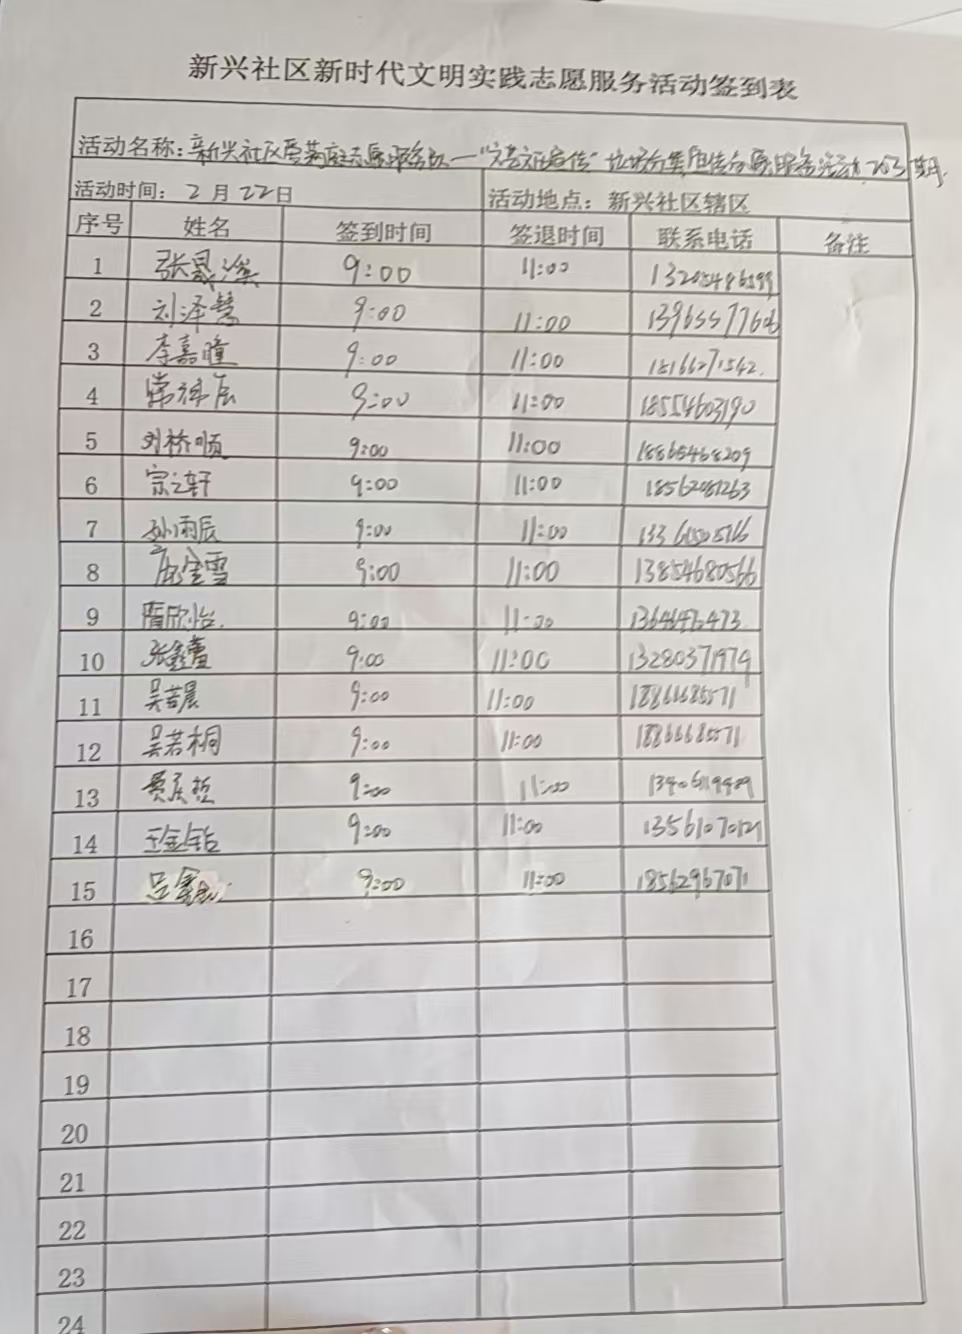 新兴社区新时代文明实践志愿服务活动签到表
活动名称：新兴社区 志愿服务队—"文艺文化宣传" 垃圾分类宣传志愿服务活动 263期
活动时间： 2 月 22日 活动地点：新兴社区辖区
序号 姓名 签到时间 签退时间 联系电话 备注
1 张晟溪 9:00 11:00 13205486599
2 刘泽慧 9:00 11:00
3 李嘉曈 9:00 11:00 18166271542
4 常祎辰 9:00 11:00 18554603190
5 刘桥顺 9:00 11:00 18865468209
6 宗之轩 9:00 11:00 18562081263
7 孙雨辰 9:00 11:00
8 庞金雪 9:00 11:00 13854680566
9 隋欣怡 9:00 11:00
10 张鑫蕾 9:00 11:00 13280371979
11 吴若晨 9:00 11:00 18866685571
12 吴若桐 9:00 11:00 18866685571
13 9:00 11:00
14 王金钰 9:00 11:00
15 吕鑫 9:00 11:00 18562967071
16
17
18
19
20
21
22
23
24